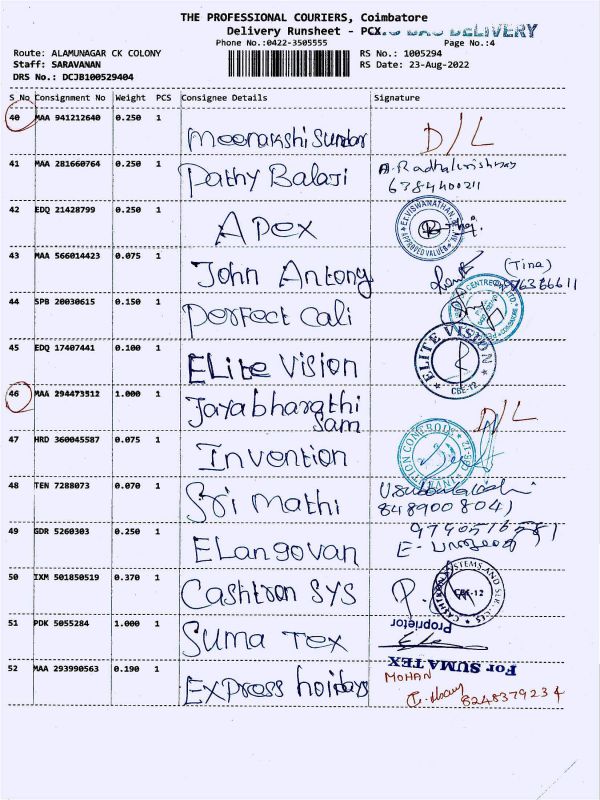 THE PROFESSIONAL COURIERS, Coimbatore
Delivery Runsheet - PCX. DELIVERY
Phone No.:0422-3505555 Page No.:4
Route: ALAMUNAGAR CK COLONY RS No.: 1005294
Staff: SARAVANAN RS Date: 23-Aug-2022
DRS No.: DCJB100529404
S No Consignment No Weight PCS Consignee Details Signature
40 MAA 941212640 0.250 1 Meenakshi Sundar D/L
41 MAA 281660764 0.250 1 Pathy Balaji A. Radhakrishnan
6384400211
42 EDQ 21428799 0.250 1 Apex
Er.VISWANATHAN
APPROVED VALUER
43 MAA 566014423 0.075 1 John Antony (Tina)
44 SPB 20030615 0.150 1 Perfect Cali
45 EDQ 17407441 0.100 1 ELite Vision
ELITE VISION
CBE-12
46 MAA 294473512 1.000 1 Jayabharathi
Sam D/L
47 HRD 360045587 0.075 1 Invention
48 TEN 7288073 0.070 1 Sri Mathi
8489008041
49 GDR 5260303 0.250 1 ELangovan
9790516581
50 IXM 501850519 0.370 1 Cashtron SYS
CBE-12
51 PDK 5055284 1.000 1 Suma Tex
Proprietor
For SUMA TEX
52 MAA 293990563 0.190 1 Express hoidays
MOHAN
8248379234